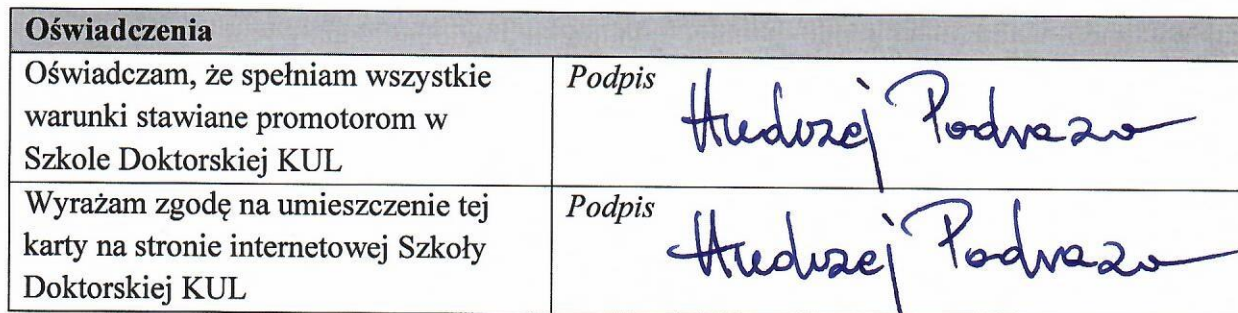 Oświadczenia
Oświadczam, że spełniam wszystkie
warunki stawiane promotorom w
Szkole Doktorskiej KUL
Podpis
Andrzej Podraza
Wyrażam zgodę na umieszczenie tej
karty na stronie internetowej Szkoły
Doktorskiej KUL
Podpis
Andrzej Podraza